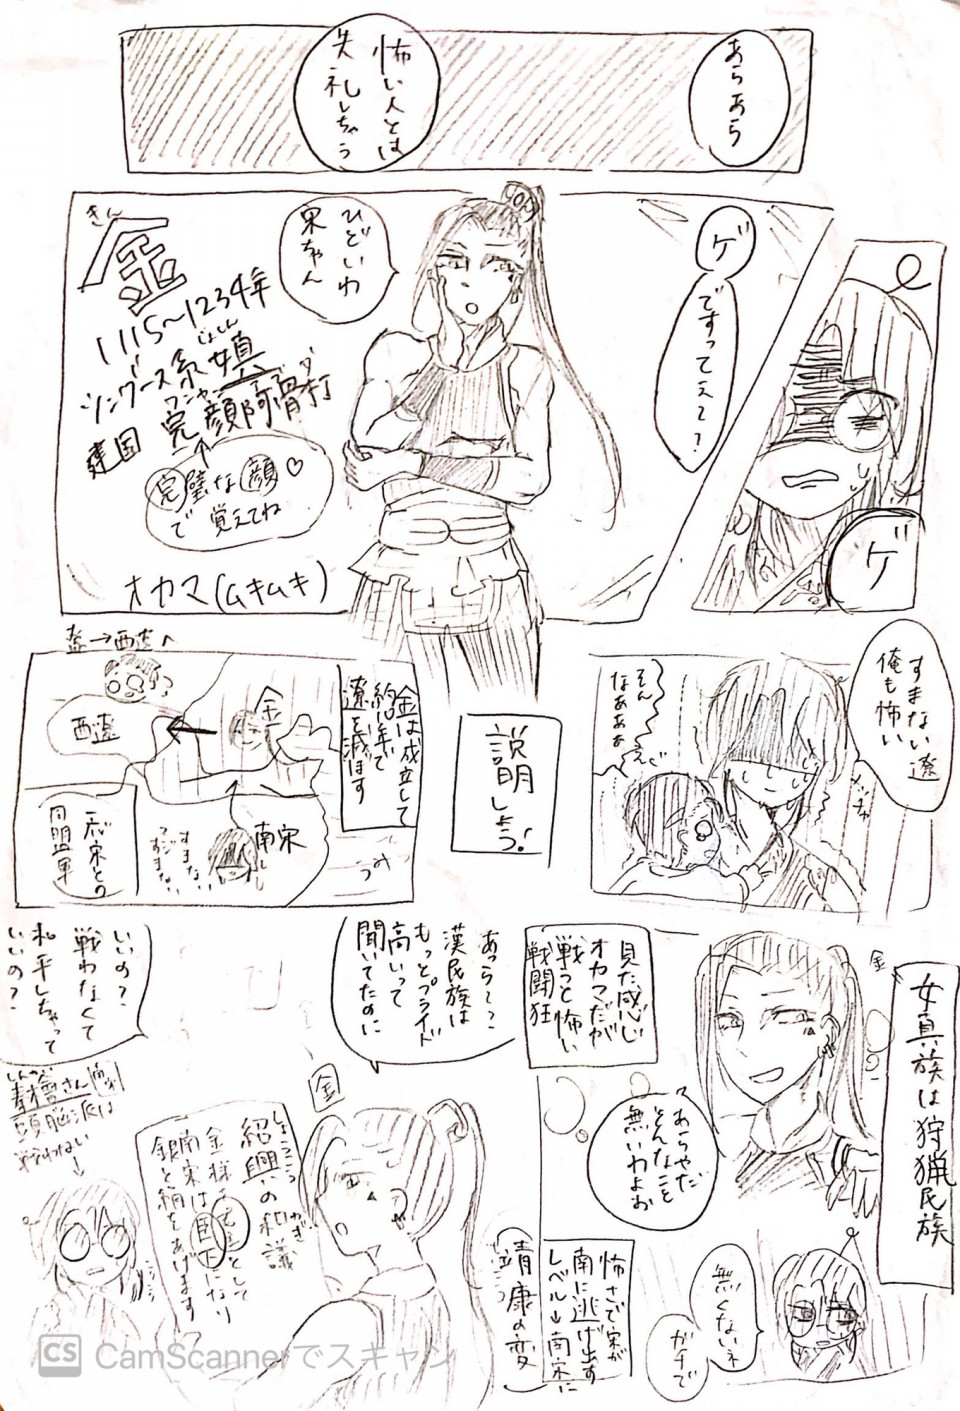 あらあら
怖い人とは
失礼しちゃう
ゲ
ゲ
ですってえ〜？
ひどいわ
宋ちゃん
きん
金
1115〜1234年
ツングース系女真
じょしん
ワンヤン
完顔阿骨打
建国
完璧な顔♡
で覚えてね
オカマ(ムキムキ)
すまない遼
俺も怖い
そんな
なぁぁぁぁ
説明しよう！
金は成立して
約10年で
遼を滅ぼす
遼→西遼へ
金
西遼
南宋
すまない
うみ
同盟軍
女真族は狩猟民族
金
見た感じ
オカマだが
戦うと怖い
戦闘狂
あらやだ
そんなこと
無いわよお
無くないネ
ガチで
怖さで宋が
南に逃げ出す
レベル→南宋に
靖康の変
あっら〜？
漢民族は
もっとプライド
高いって
聞いてたのに
いいの？
戦わなくて
和平しちゃって
いいの？
金
しょうこう
紹興の和議
わぎ
金様を君として
南宋は臣下になり
銀と絹をあげます
しんかい
秦檜さん
南宋
頭脳派は
戦わない
CS CamScannerでスキャン